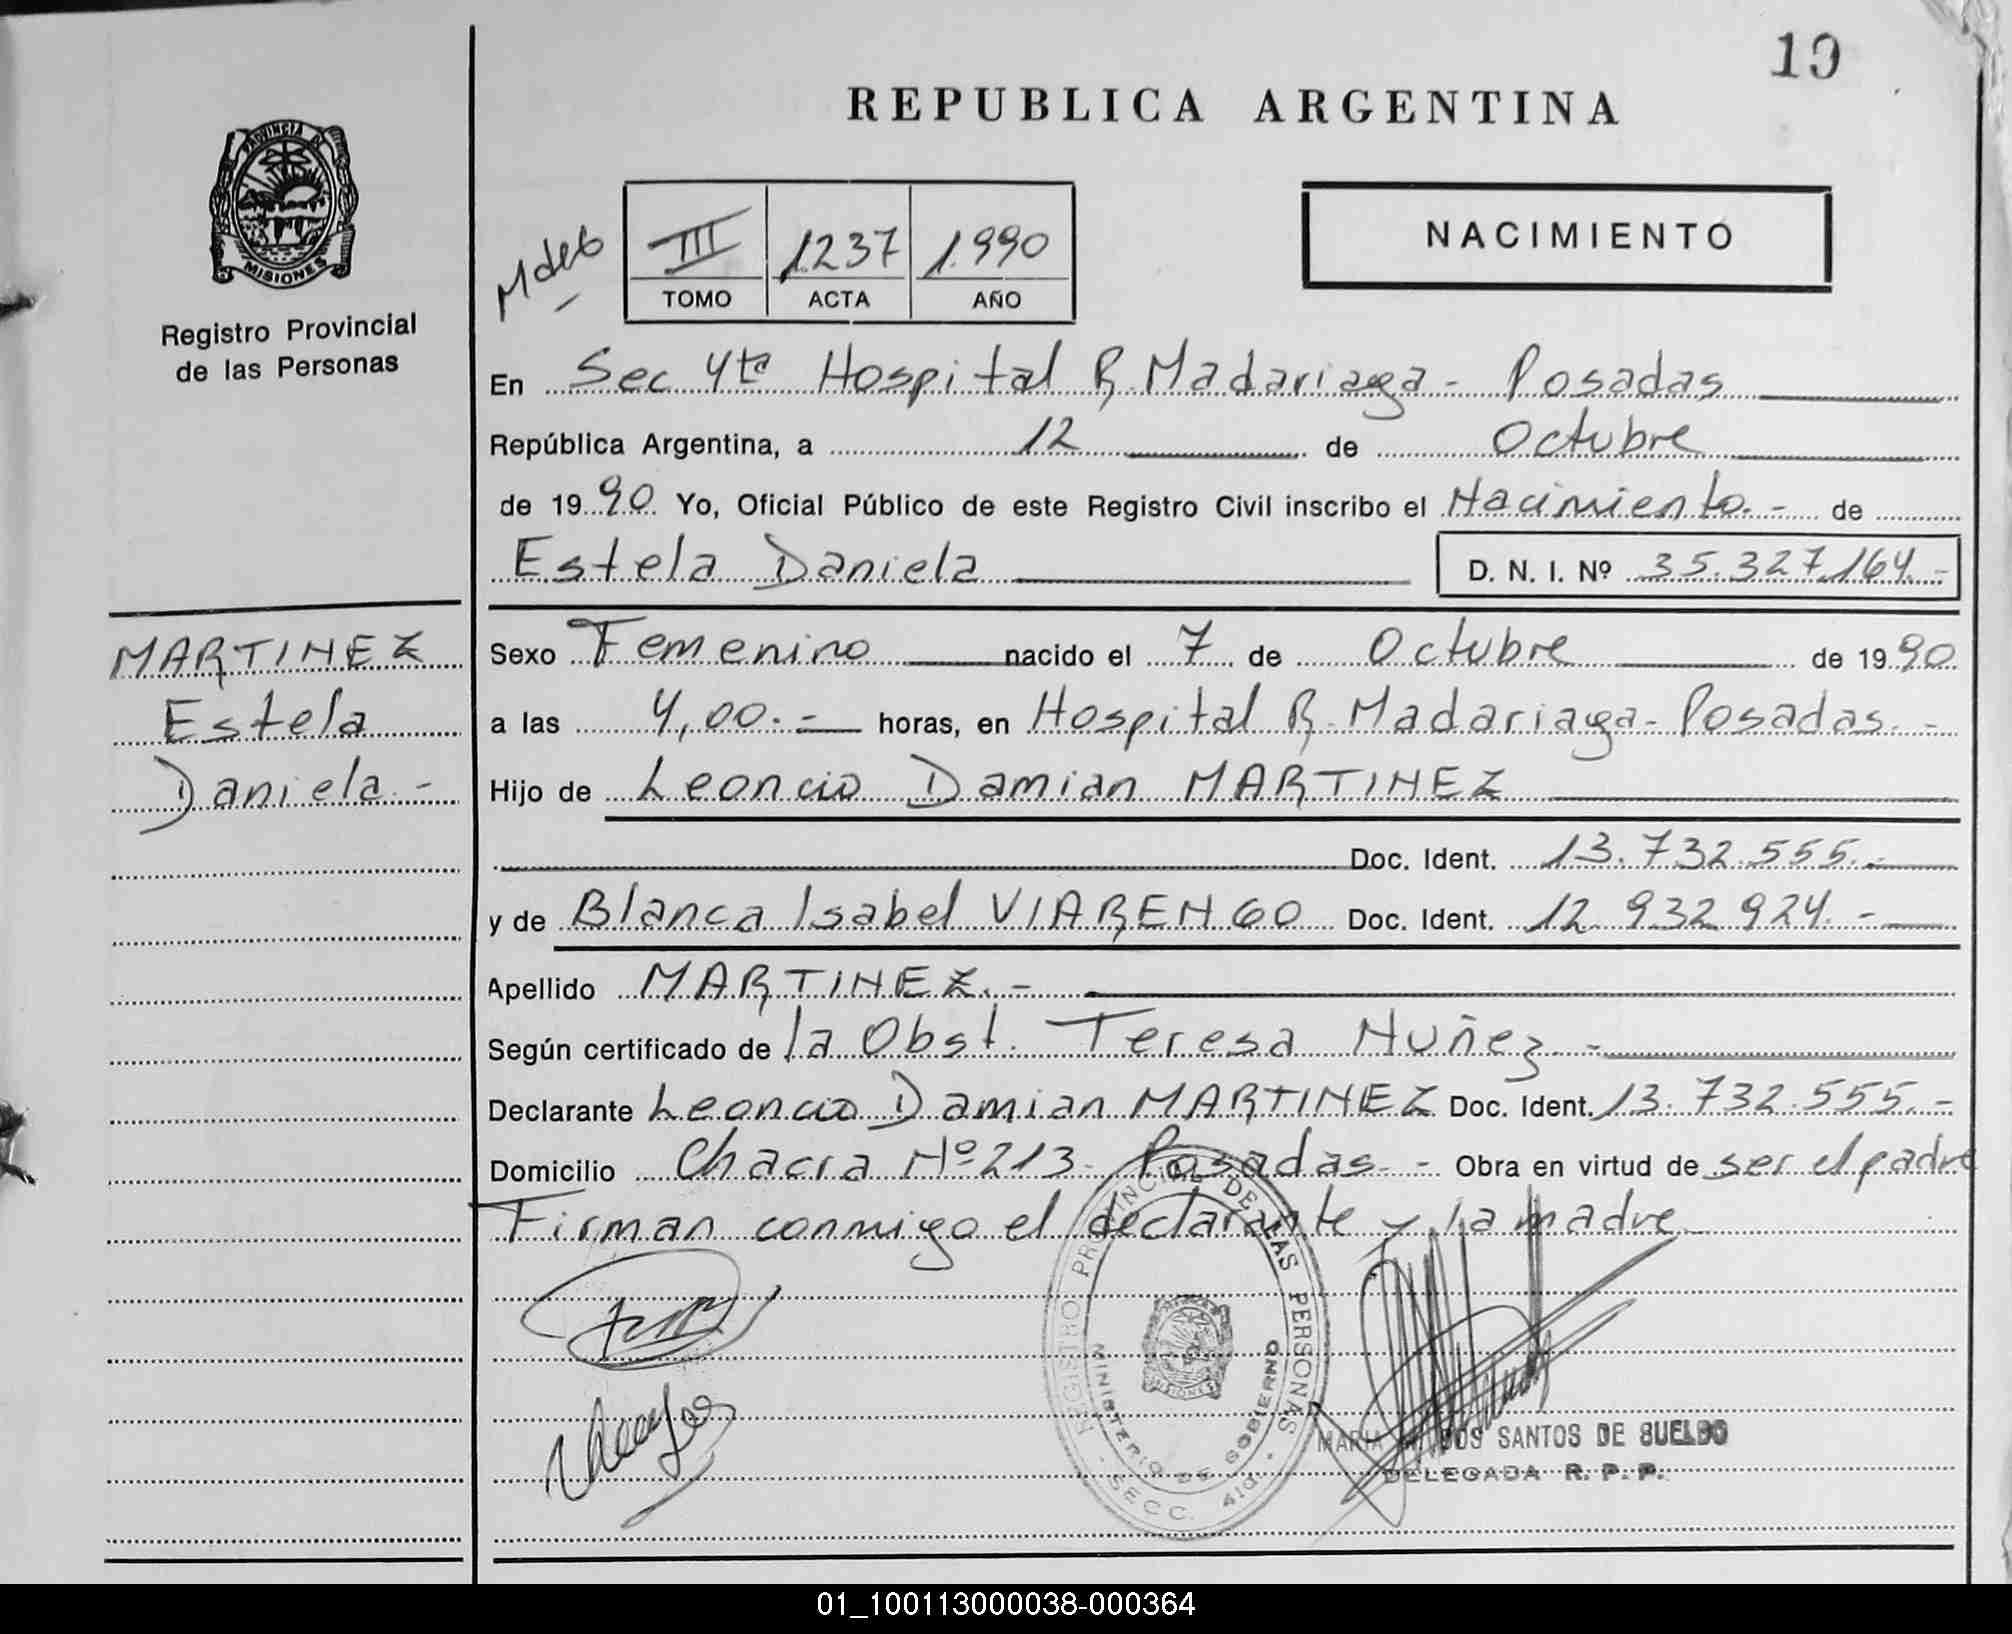 19
REPUBLICA ARGENTINA
PROVINCIA DE
MISIONES
Registro Provincial
de las Personas
III 1237 1.990
TOMO ACTA AÑO
NACIMIENTO
En Sec 4ta Hospital R. Madariaga - Posadas
República Argentina, a 12 de Octubre
de 1990 Yo, Oficial Público de este Registro Civil inscribo el Nacimiento.- de
Estela Daniela D. N. I. Nº 35.327.164.-
MARTINEZ
Estela
Daniela.-
Sexo Femenino nacido el 7 de Octubre de 1990
a las 4,00.- horas, en Hospital R. Madariaga - Posadas.-
Hijo de Leoncio Damian MARTINEZ
Doc. Ident. 13.732.555.-
y de Blanca Isabel VIARENGO Doc. Ident. 12.932.924.-
Apellido MARTINEZ.-
Según certificado de la Obst. Teresa Nuñez.-
Declarante Leoncio Damian MARTINEZ Doc. Ident. 13.732.555.-
Domicilio Chacra Nº 213- Posadas.- Obra en virtud de ser el padre
Firman conmigo el declarante y la madre
REGISTRO PROVINCIAL DE LAS PERSONAS
MINISTERIO DE GOBIERNO
MISIONES
SECC. 4ta
MARIA DOS SANTOS DE SUELDO
DELEGADA R. P. P.
01_100113000038-000364